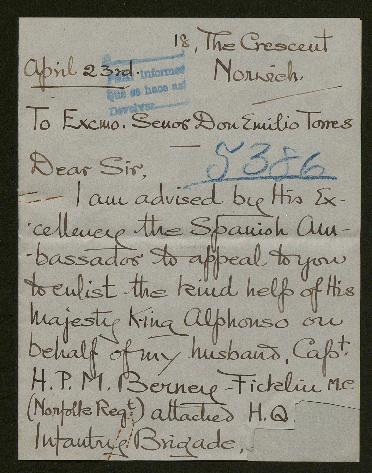 18, The Crescent
Norwich.
April 23rd.
Para informes
que se hace así
Devolver
To Excmo. Senor Don Emilio Torres
5386
Dear Sir,
I am advised by His Ex-
cellency the Spanish Am-
bassador to appeal to you
to enlist the kind help of His
Majesty King Alphonso on
behalf of my husband, Capt.
H. P. M. Berney-Ficklin M.C
(Norfolk Regt.) attached H.Q
Infantry Brigade.